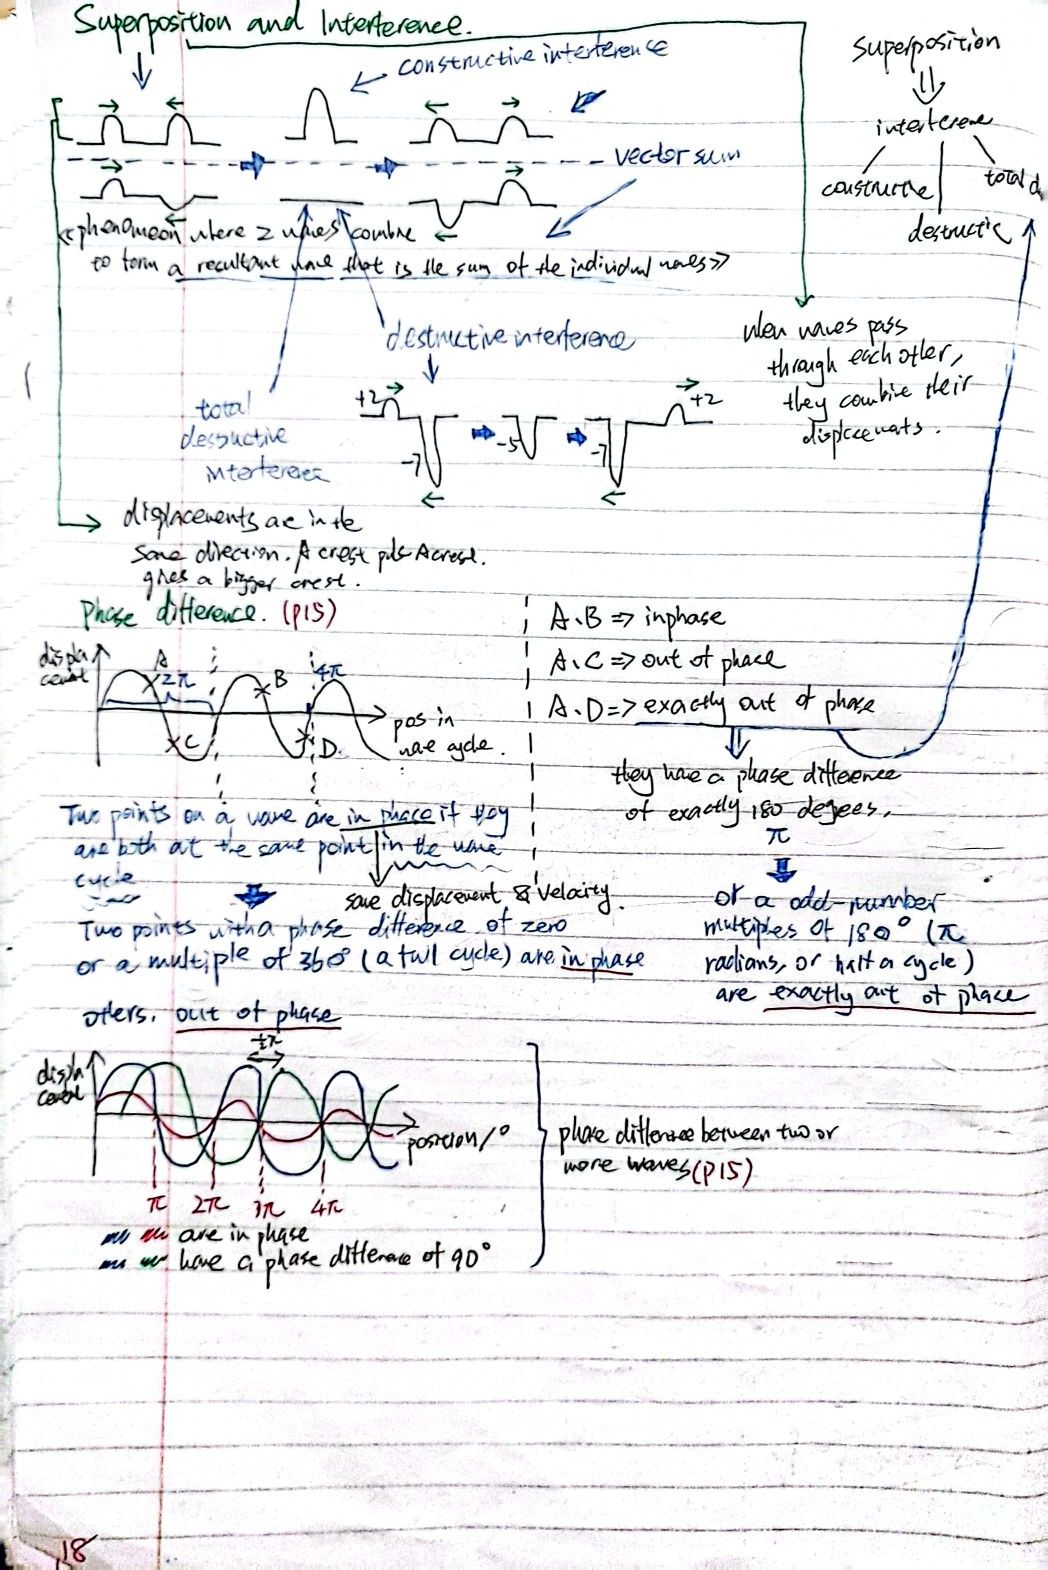 Superposition and Interference.
constructive interference
vector sum
<< phenomeon where 2 waves combine
to form a resultant wave that is the sum of the individual waves >>
superposition
interference
constructive
total d
destructic
destructive interference
total
destructive
interference
+2
-7
-5
-7
+2
when waves pass
through each other,
they combine their
displacements.
displacements are in the
same direction. A crest plus A crest.
gives a bigger crest.
Phase difference. (P15)
displa
cement
A
2π
B
4π
C
D
pos in
wave cycle.
A、B => inphase
A、C => out of phase
A、D => exactly out of phase
they have a phase difference
of exactly 180 degrees.
π
or a odd-number
multiples of 180° (π
radians, or half a cycle)
are exactly out of phase
Two points on a wave are in phase if they
are both at the same point in the wave
cycle
same displacement & velocity.
Two points with a phase difference of zero
or a multiple of 360° (a full cycle) are in phase
others. out of phase
½π
displa
cement
position/°
π 2π 3π 4π
are in phase
have a phase difference of 90°
phase difference between two or
more waves (P15)
18